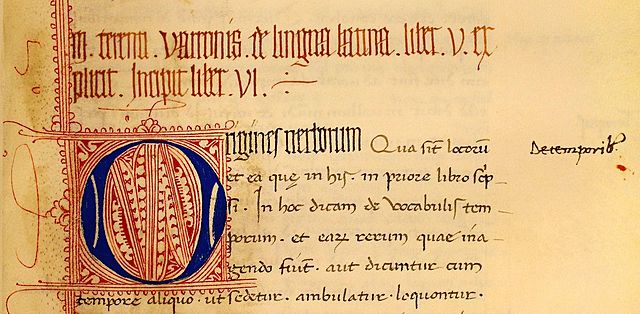 M. terenti. Varronis. de lingua latina. liber. V. ex
plicit. Incipit liber. VI.
Origines verborum Qua sīt locorū
et ea quę in his. in priore libro scp̄
si. In hoc dicam de vocabulis tem
porum. et eaꝝ rerum quae in a
gendo fiūt. aut dicuntur cum
tempore aliquo. ut sedetur. ambulatur. loquontur.
De temporib;